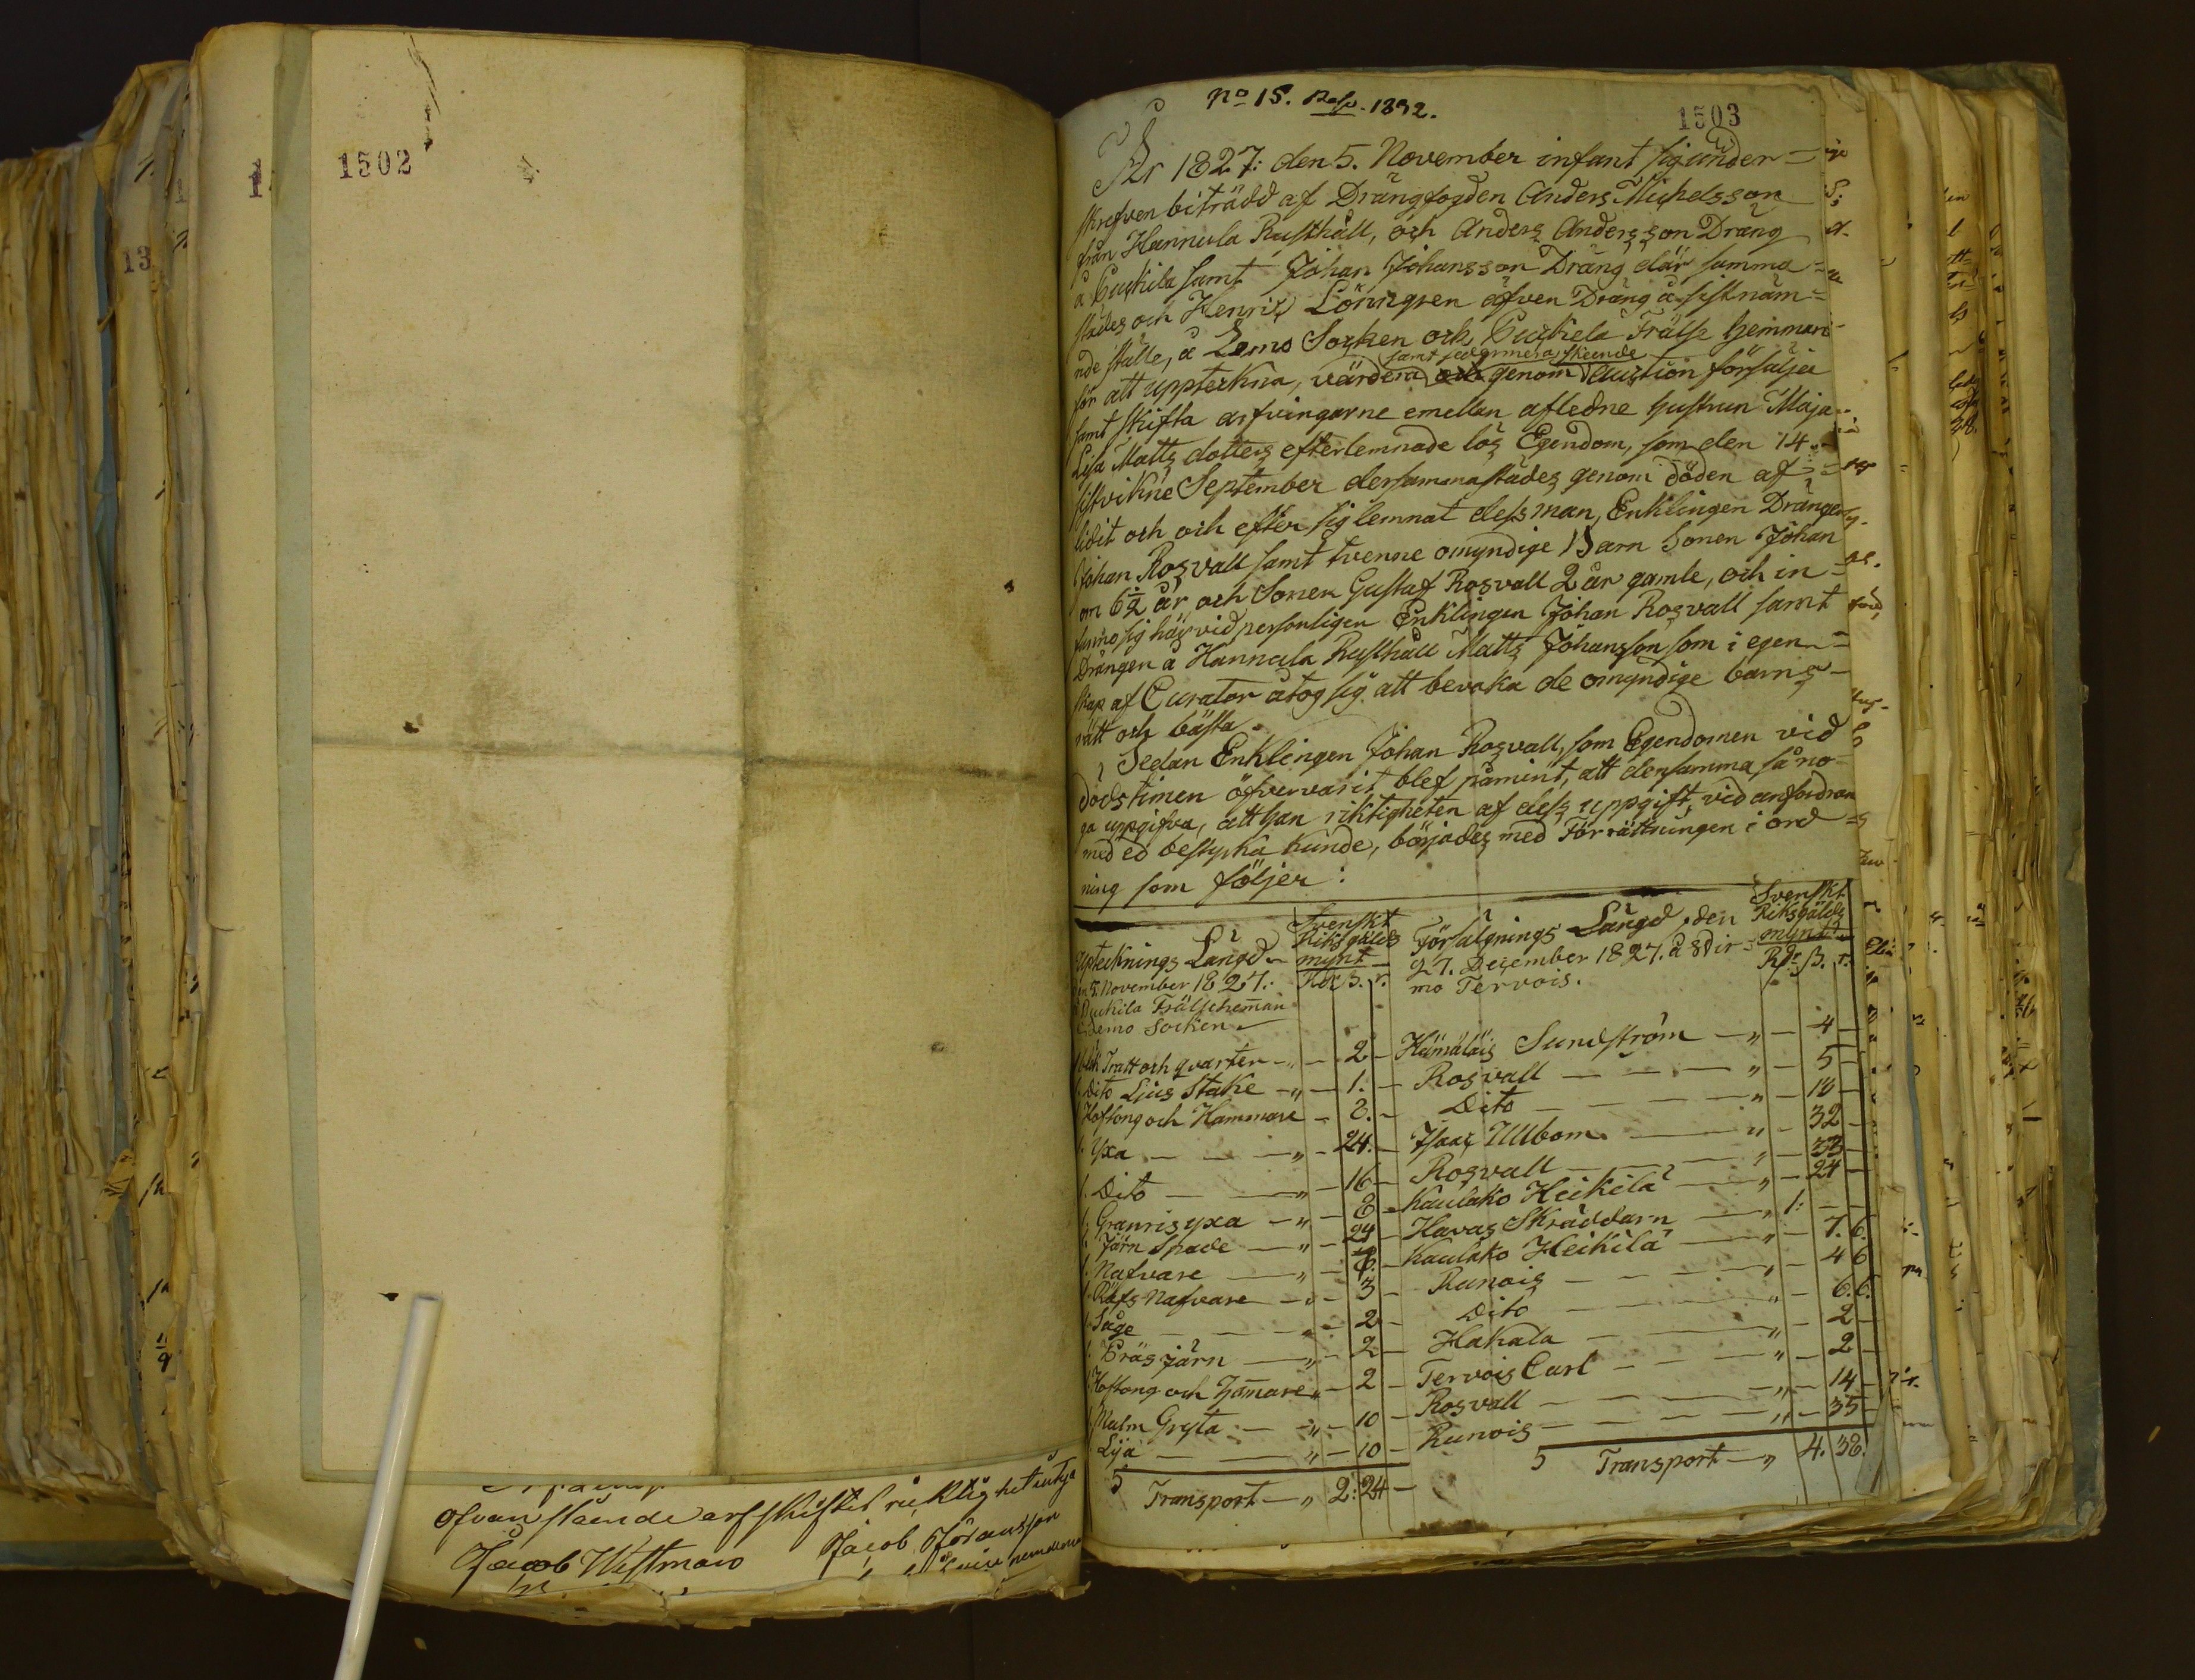 1502
ofvanstående arfskiftet ricktighet intyga
Jacob Westman Jacob Göransson
No 15. Resp. 1832.
1503
År 1827: den 5. November infant sig under=
skrefven biträdd af Drängfogden Anders Michelsson
från Hannula Rusthåll, och Anders Andersson Dräng
å Puckila samt Johan Johansson Dräng där samma=
städes och Henric Lönngren äfven Dräng å sistnäm=
nde ställe, å Lemo Socken och Puckiela Frälse hemman
samt sedermera skeende
för att uppteckna, värdera och genom Auction försälja
samt skifta arfvingarne emellan afledne hustrun Maja
Lisa Matts dotters efterlemnade lös Egendom, som den 14
sistvikne September dersammastädes genom döden af=
lidit och och efter sig lemnat dess man, Enklingen Drängen
Johan Rosvall samt tvenne omyndige Barn Sonen Johan
om 6½ år och Sonen Gustaf Rosvall 2 år gamle, och in=
funno sig härvid personligen Enklingen Johan Rosvall samt
Drängen å Hannula Rusthåll Matts Johansson som i egen=
skap af Curator åtog sig att bevaka de omyndige barns
rätt och bästa.
Sedan Enklingen Johan Rosvall, som Egendomen vid
dödstimen öfvervarit blef påmint, att densamma så no=
ga uppgifva, att han riktigheten af dess uppgift, vid anfordran
med ed bestyrka kunde, börjades med Förrättningen i ord=
ning som följer:
Upteknings Längd Svenskt Riksgälds mynt Försälgnings Längd, den Svenskt Riksgälds mynt
den 5. November 1827. Rdr ß. r. 27. December 1827. å Nir= Rdr ß. r.
Puckila Frälsehemman mo Tervois.
Lemo Socken
1 bläck Tratt och qvarter 2 Hämäläis Sundström 4
1. Dito Lius Stake 1. Rosvall 5
1 Hoftong och Hammare 2. Dito 10
1. Yxa 24. Isaac Ullbom 32
1. Dito 16 Rosvall 33
1 Granris yxa 8 Kaulako Heikilä 24
1. Järn Spade 24 Havas Skräddarn 1:
1. Nafvare 6. Kaulako Heikilä 7. 6.
1. Räfs Nafvare 3 Runois 4 6
1. Såge 2 Dito 6. 6.
1. Bräsjärn 2 Hakala 2
1. Hoftong och Hammare 2 Tervois Carl 2
1. Malm Gryta 10 Rosvall 14
1. Lija 10 Runois 35
Transport 2: 24 Transport 4. 38.